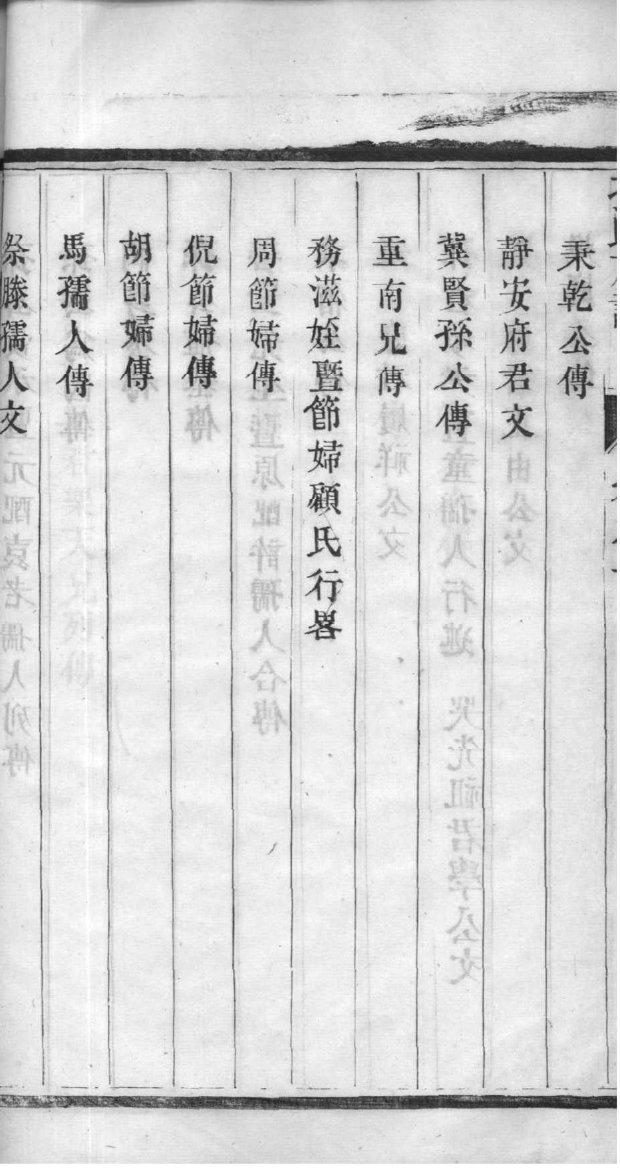 秉乾公傳
靜安府君文
冀賢孫公傳
重南兄傳
務滋姪暨節婦顧氏行畧
周節婦傳
倪節婦傳
胡節婦傳
馬孺人傳
祭滕孺人文